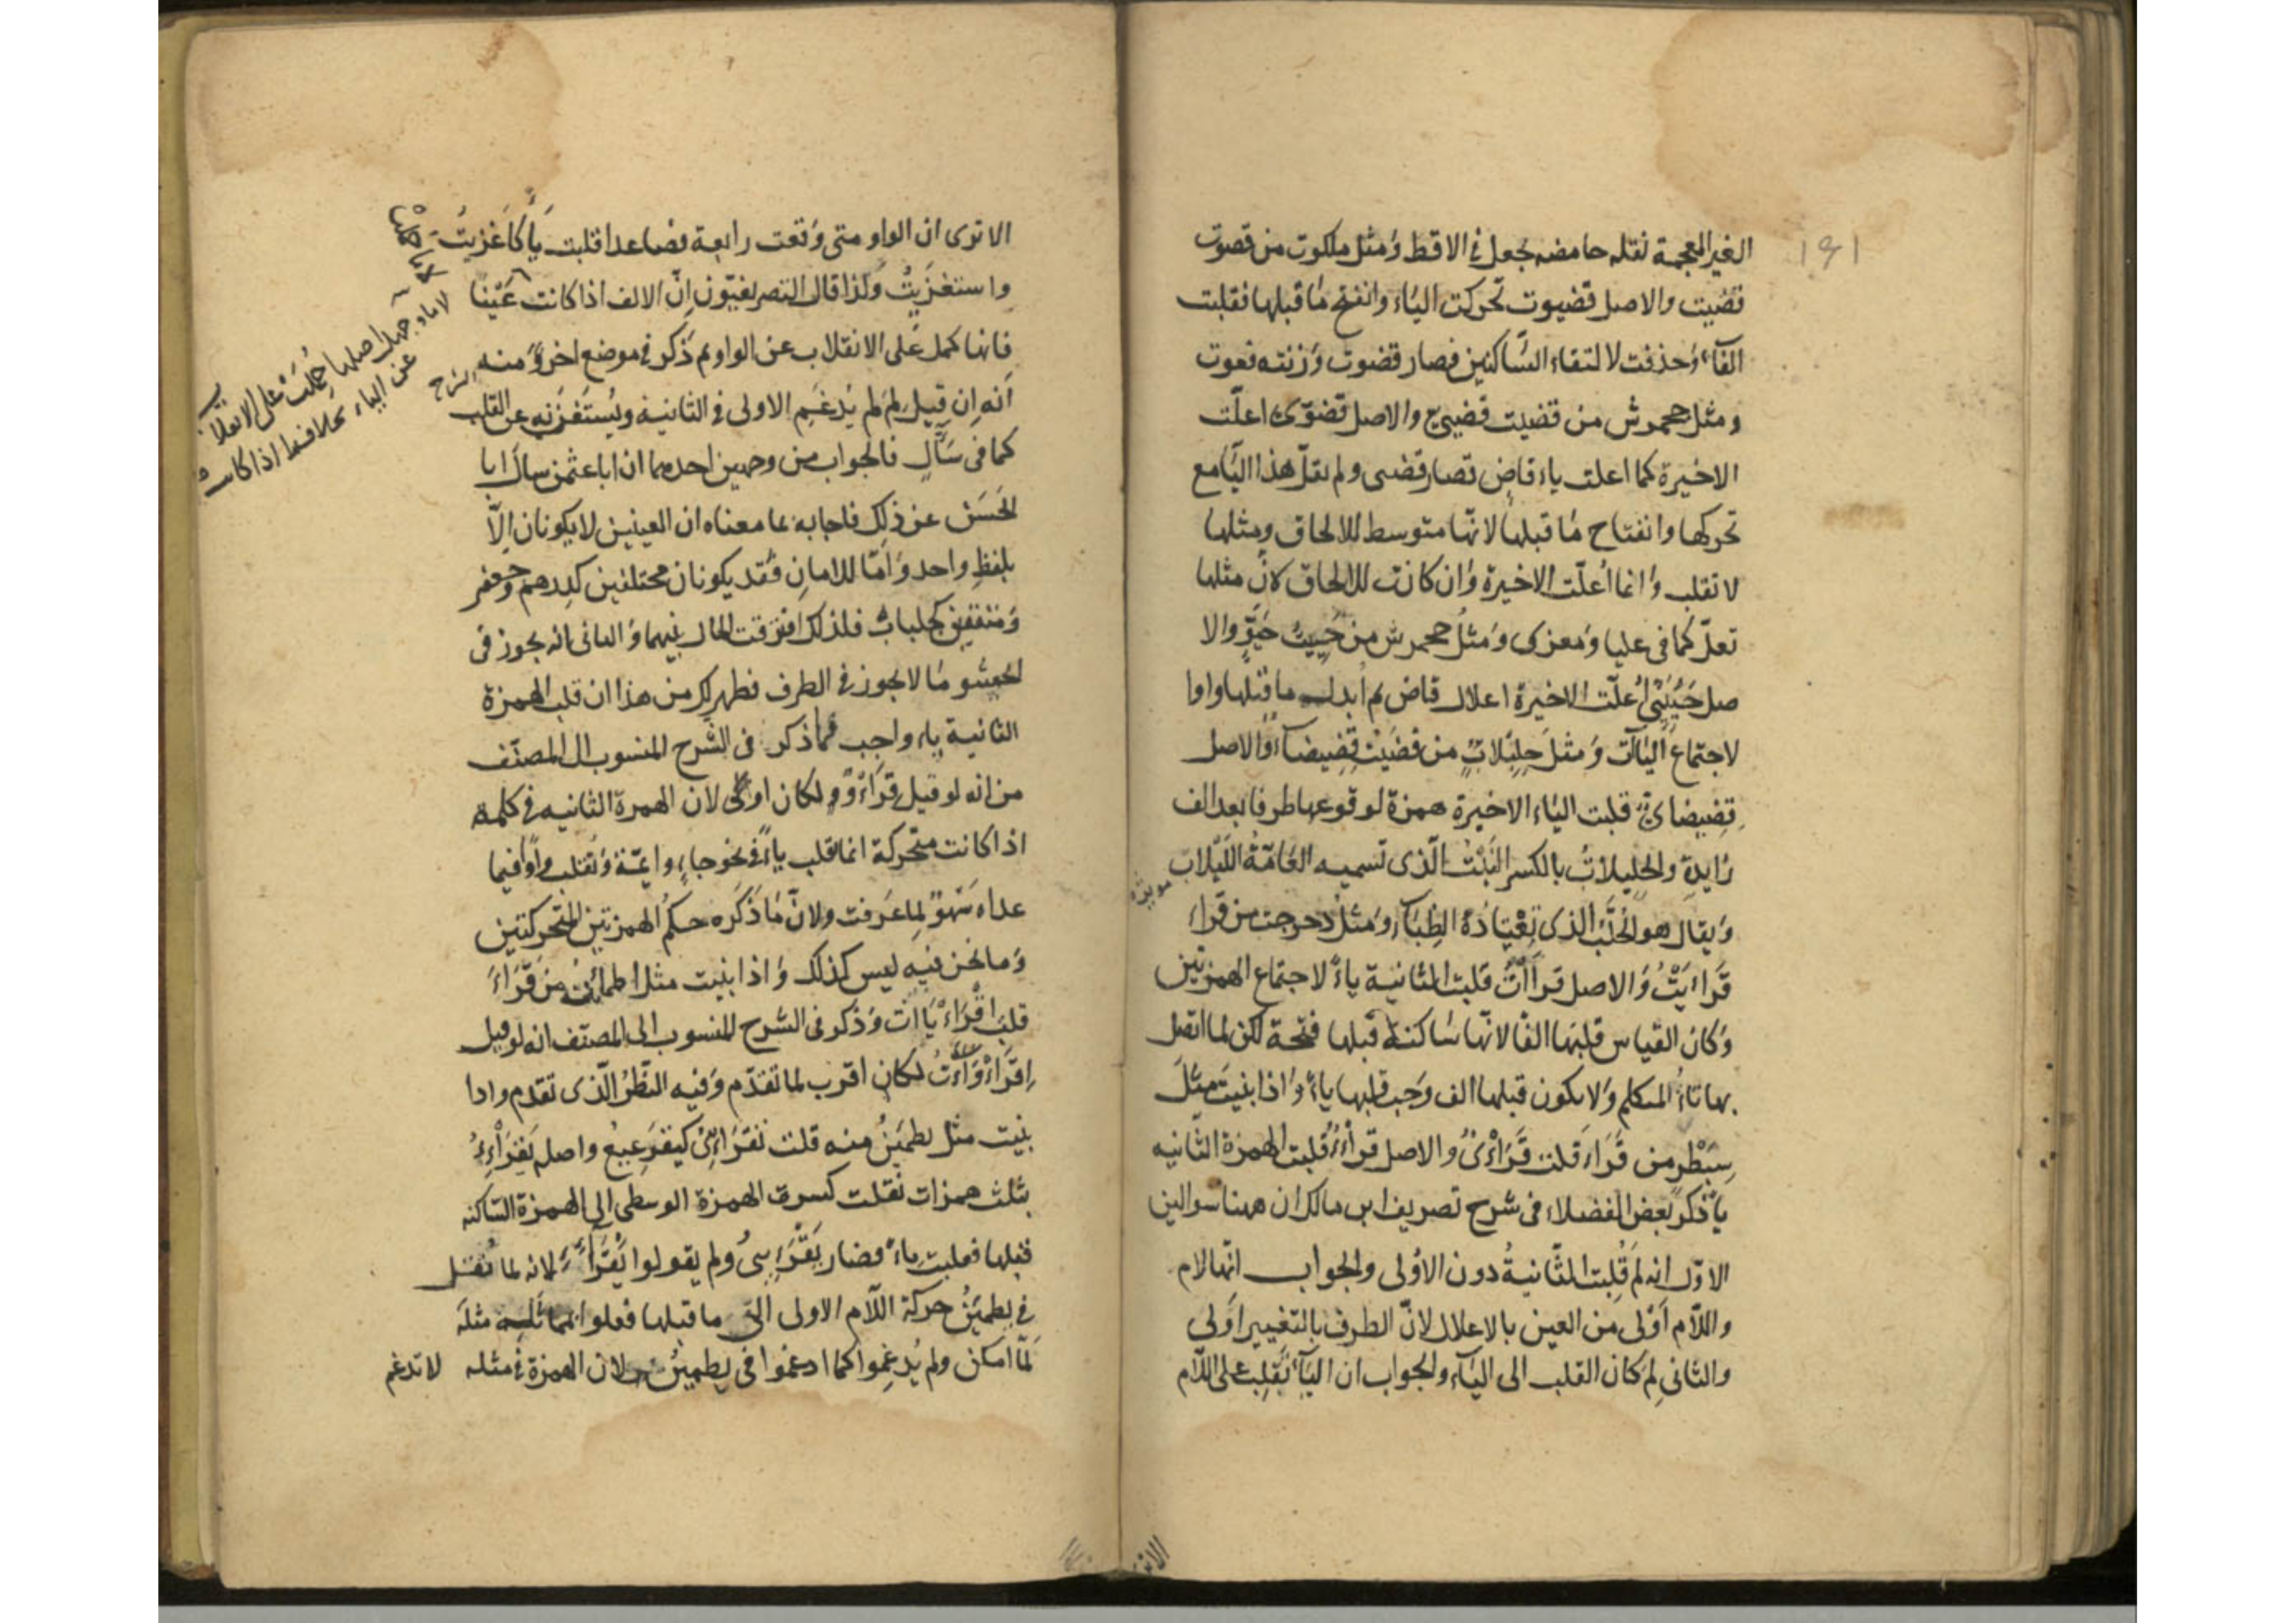 ١٤١
الغير المعجمة نقله حامضه يجعل في الاقط ومثل ملكوت من قضوت
قضيت والاصل قضيوت تحركت الياء وانفتح ما قبلها فقلبت
الفا وحذفت لالتقاء الساكنين فصار قضوت وزنته فعوت
ومثل جحمرش من قضيت قضيي والاصل اعلت
الاخيرة كما اعلت ياء قاض فصار قضى ولم تعل هذا اليا مع
تحركها وانفتاح ما قبلها لانها متوسط للالحاق ومثلها
لا تقلب وانما اُعلّت الاخيرة وان كانت للالحاق لانّ مثلها
تعلّ كما فى عليا ومعزى ومثلُ جحمرش من حَيِيتُ حَيَوٍّ والا
صل أعلّت الاخيرة اعلال قاض ثم اُبدلت ما قبلها واوا
لاجتماع اليآآت ومثل حِلِبْلابٍ من قضَيْتُ قِضِيضآء والاصل
قِضِيضاى قلبت الياء الاخيرة همزة لوقوعها طرفا بعد الف
زايدة والحلبلابُ بالكسر النَبْتُ الّذى تسميه العَامّةُ اللَبْلاب
ويقال هو الحُلَّبُ الذى تَعْتادُهُ الظِبَآء ومثلُ دحرجت من قراء
قَراءَيْتُ والاصل قرأأتُ قلبت الثانية ياءً لاجتماع الهمزتين
وكان القياس قلبَها الفًا لانّها ساكنة قبلها فتحة لكن لما اتصل
بها تاءُ المتكلم ولا يكون قبلها الف وجب قلبها ياءً واذا بنيتَ مثلَ
سِبَطْرٍ من قَراءَ قلت قِرَأْىٌ والاصل قرأْءٌ قلبت الهمزة الثانيه
ياءً ذكر بعض الفضلاء فى شرح تصريف ابن مالك ان ههنا سوالين
الاوّل انه لِمَ قُلِبَت الثّانيةُ دون الأولى والجواب انّها لام
واللّام أَوْلى من العين بالاعلال لانّ الطرف بالتغيير أولى
والثانى لِمَ كان القلب الى اليآء والجواب ان اليآء تَغْلِبُ على اللّام
الا ترى ان الواو متى وقعت رابعة فصاعدا قلبت ياءً كأغزيتُ
واستغزيتُ ولذا قال التصريفيّون إنّ الالف اذا كانت عَيْنا
فانها تحمل على الانقلاب عن الواو ثم ذَكر فى موضع اخر ومنه
أنه إن قِيل لِمَ لَم يُدغَم الاولى فى الثانية عن القلب
كما فى سَآّلٍ فالجواب من وجهين احدهما ان ابا عثمن سال ابا
الحَسَن عن ذلك فاجابه بما معناه ان العينين لا يكونان إلّا
بلفظٍ واحد وأمّا اللامان فقد يكونان مختلفين كدرهم وجعفر
ومتفقين كجلباب فلذلك افترقت الحال بينهما والثانى انه يجوز فى
الحشو ما لا يجوز فى الطرف فظهر لك من هذا ان قلب الهمزة
الثانية ياء واجب فما ذكر فى الشرح المنسوب الى المصنّف
من انه لو قيل قِرَأْوٌ لكان اولى لان الهمزة الثانيه فى كلمة
اذا كانت متحركة انما تقلب ياءً فى نحو جاءٍ وايمّة وتُقلب واوًا فيما
عداه سَهْوٌ لِما عَرفت ولانّ ما ذَكَره حكمُ الهمزتين المتحركتين
وما نحن فيه ليس كذلك واذا بنيت مثل اطمأننت من قَراءَ
قلت اقْرَاءْيَأْتُ وذكر فى الشرح المنسوب الى المصنّف انه لو قيل
اِقْرَأْوَأْتُ لكان اقرب لما تقدّم وفيه النظرُ الّذى تقدم واذا
بنيت مثل يطمئنُّ منه قلت يَقْرَئِىْءُ كيَقْرَعِيعُ واصله يَقْرَأْءِءُ
بثلث همزات نُقلت كسرة الهمزة الوسطى الى الهمزة الساكنه
قبلها فقلبت ياءً فصار ولم يقولوا لانه لما نُقل
فى يطمئنُّ حركة اللّام الاولى الى ما قبلها فعلوا مثله
لمّا امكن ولم يُدغِموا كما ادغموا فى يطمئنّ لان الهمزة فى مثله لا تدغم
لاماو جهل اصلها حُمِلَتْ على الانقلاب
عن الياء بخلاف ما اذا كانت